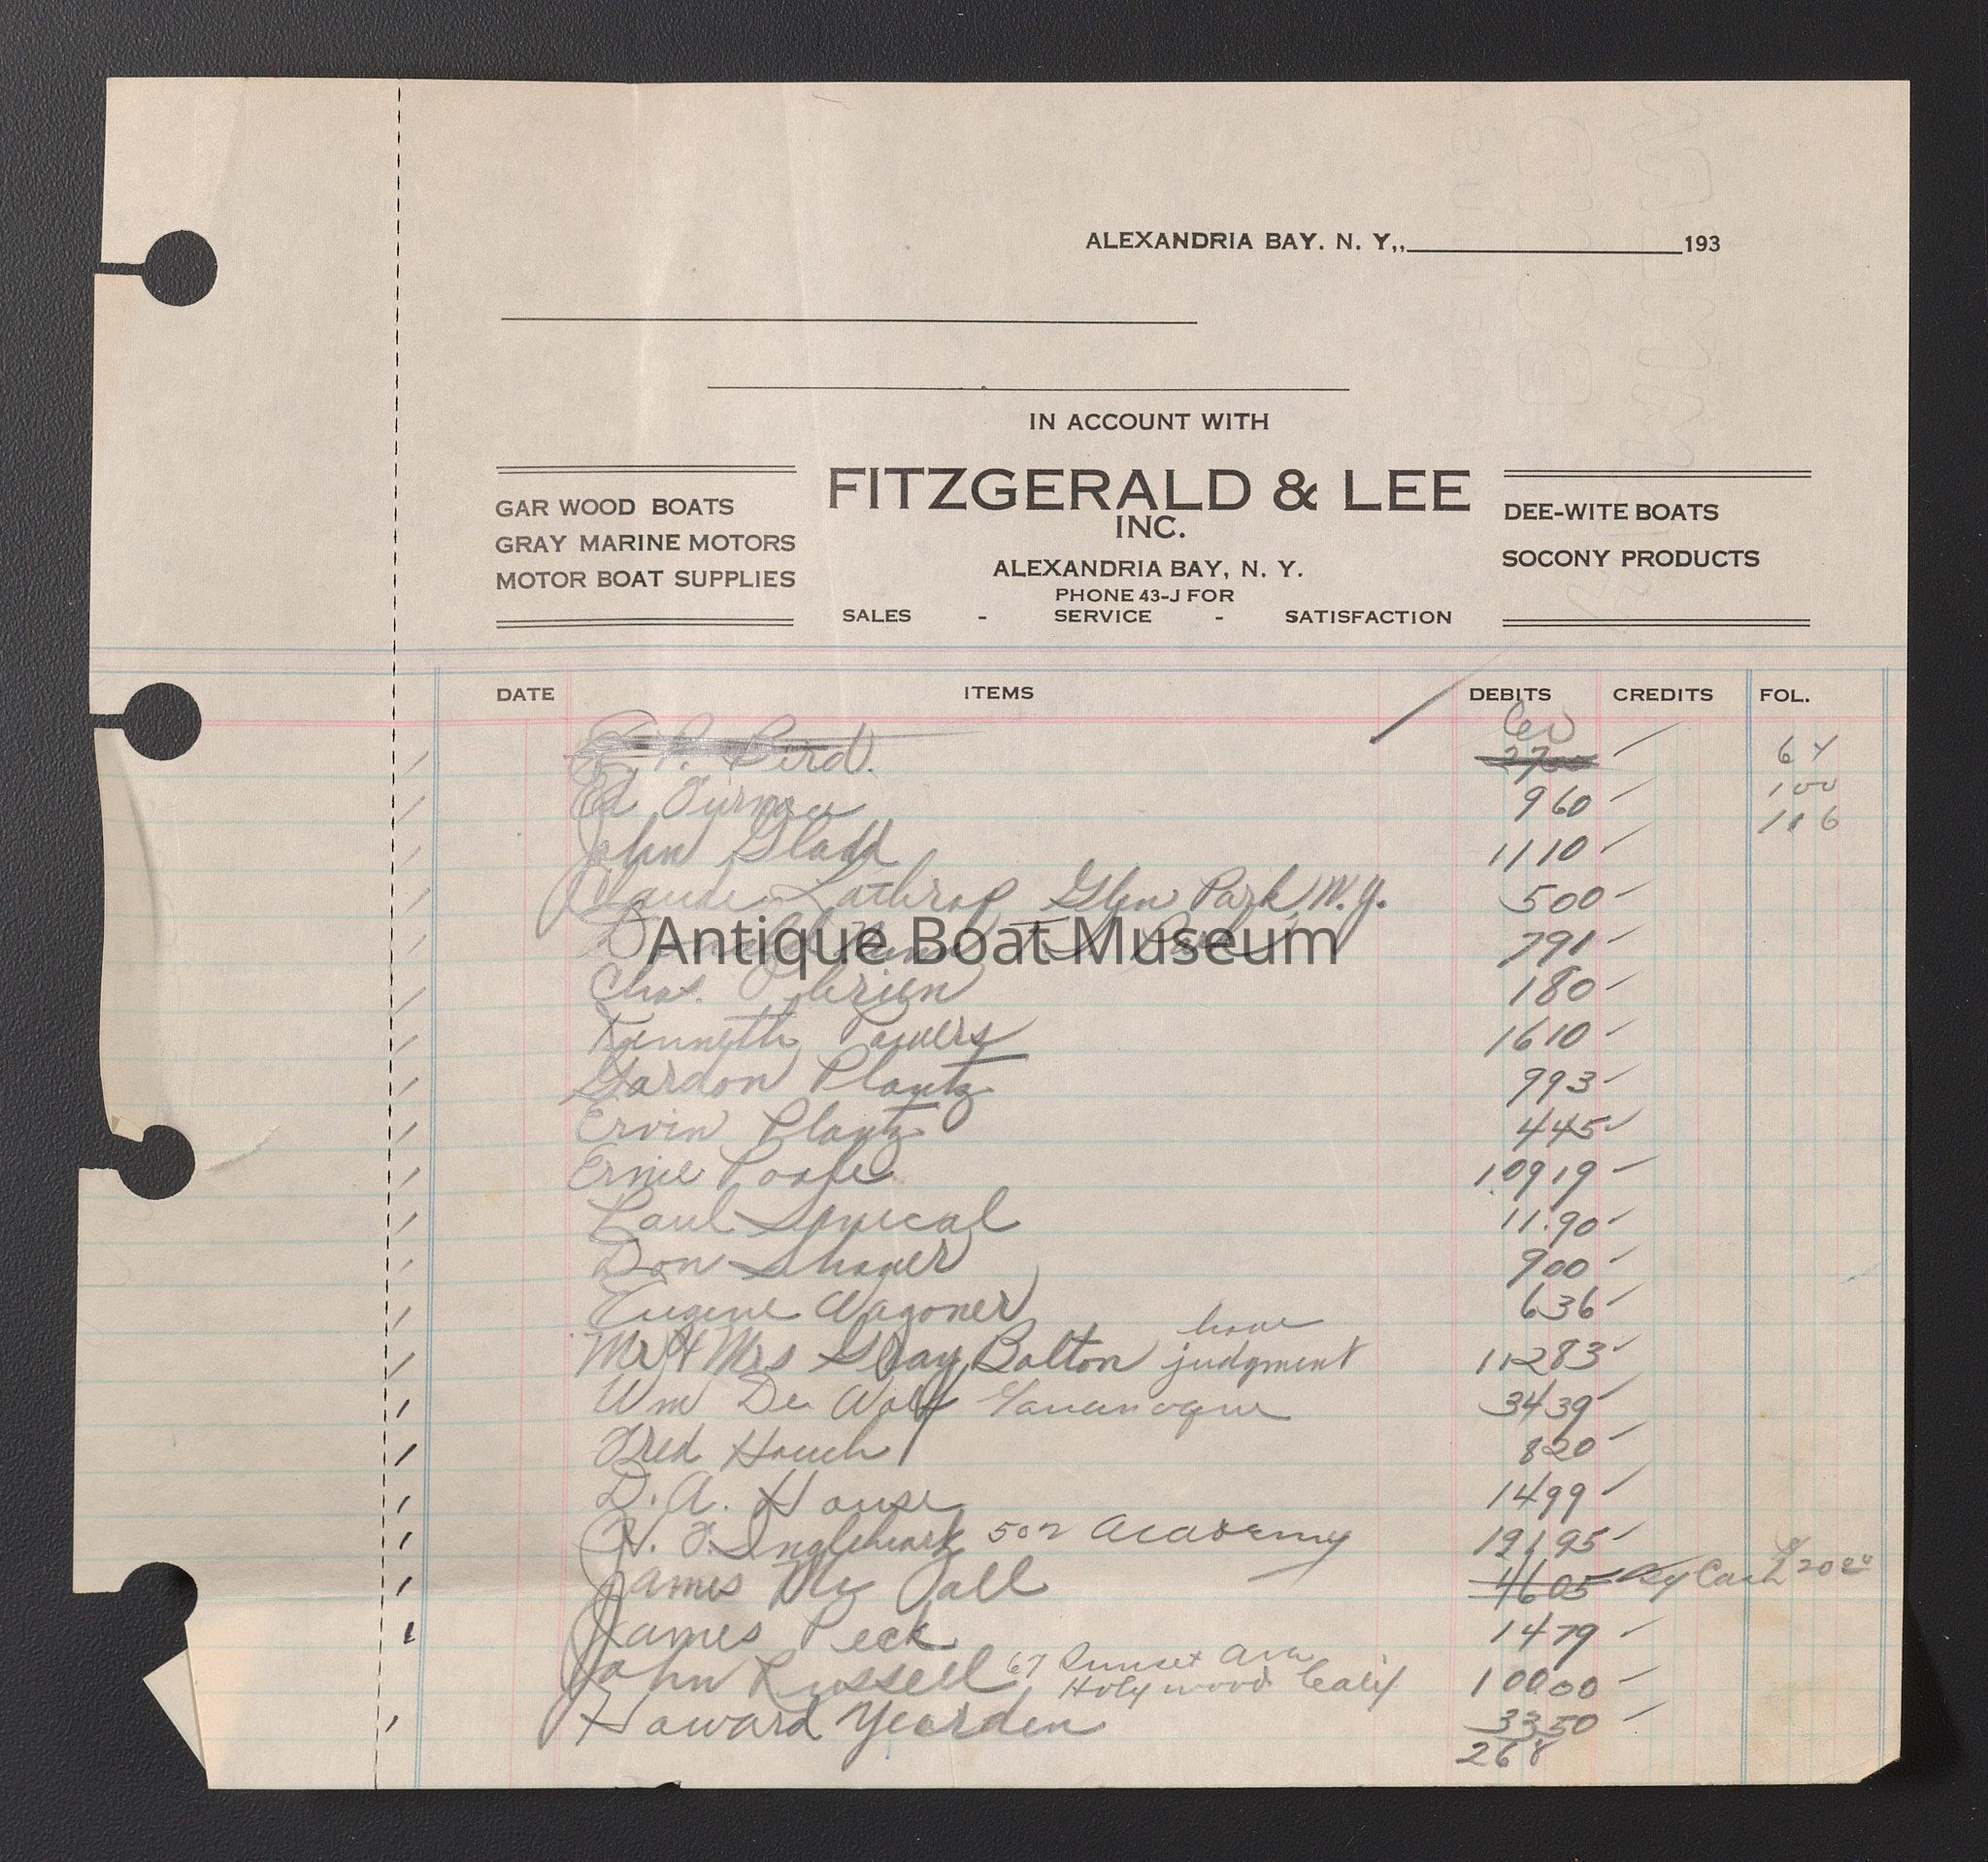 ALEXANDRIA BAY. N. Y,, 193
IN ACCOUNT WITH
FITZGERALD & LEE
INC.
GAR WOOD BOATS
GRAY MARINE MOTORS
MOTOR BOAT SUPPLIES
DEE-WITE BOATS
SOCONY PRODUCTS
ALEXANDRIA BAY, N. Y.
PHONE 43-J FOR
SALES - SERVICE - SATISFACTION
DATE ITEMS DEBITS CREDITS FOL.
P. Bird. 2700 64
Ed 960 100
John Gladd 1110 116
Claude Lathrop Glen Park, N.Y. 500
791
Antique Boat Museum
Chas. O'brien 180
Kenneth Powers 1610
Gordon Plantz 993
Ervin Plantz 445
Ernie Poole 10919
Paul Senecal 11.90
Don Shaver 900
Eugene Wagoner 636
have
Mr & Mrs Gray Bolton judgment 11283
Wm De Wolf Gananoque 3439
Fred Houch 820
D. A. House 1499
Inglehart 502 Academy 19195
James Mc Call 4605 By Cash $20
James Peck 1479
John Russell 67 Sunset Ave
Holywood Calif 10000
Howard Yearden 3350
268